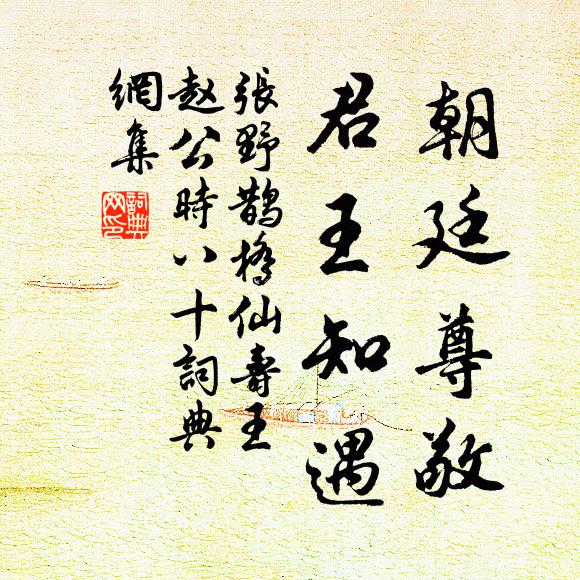 朝廷尊敬
君王知遇
張野鵲橋仙壽王
趙公時八十詞典
網集
詞典
网印